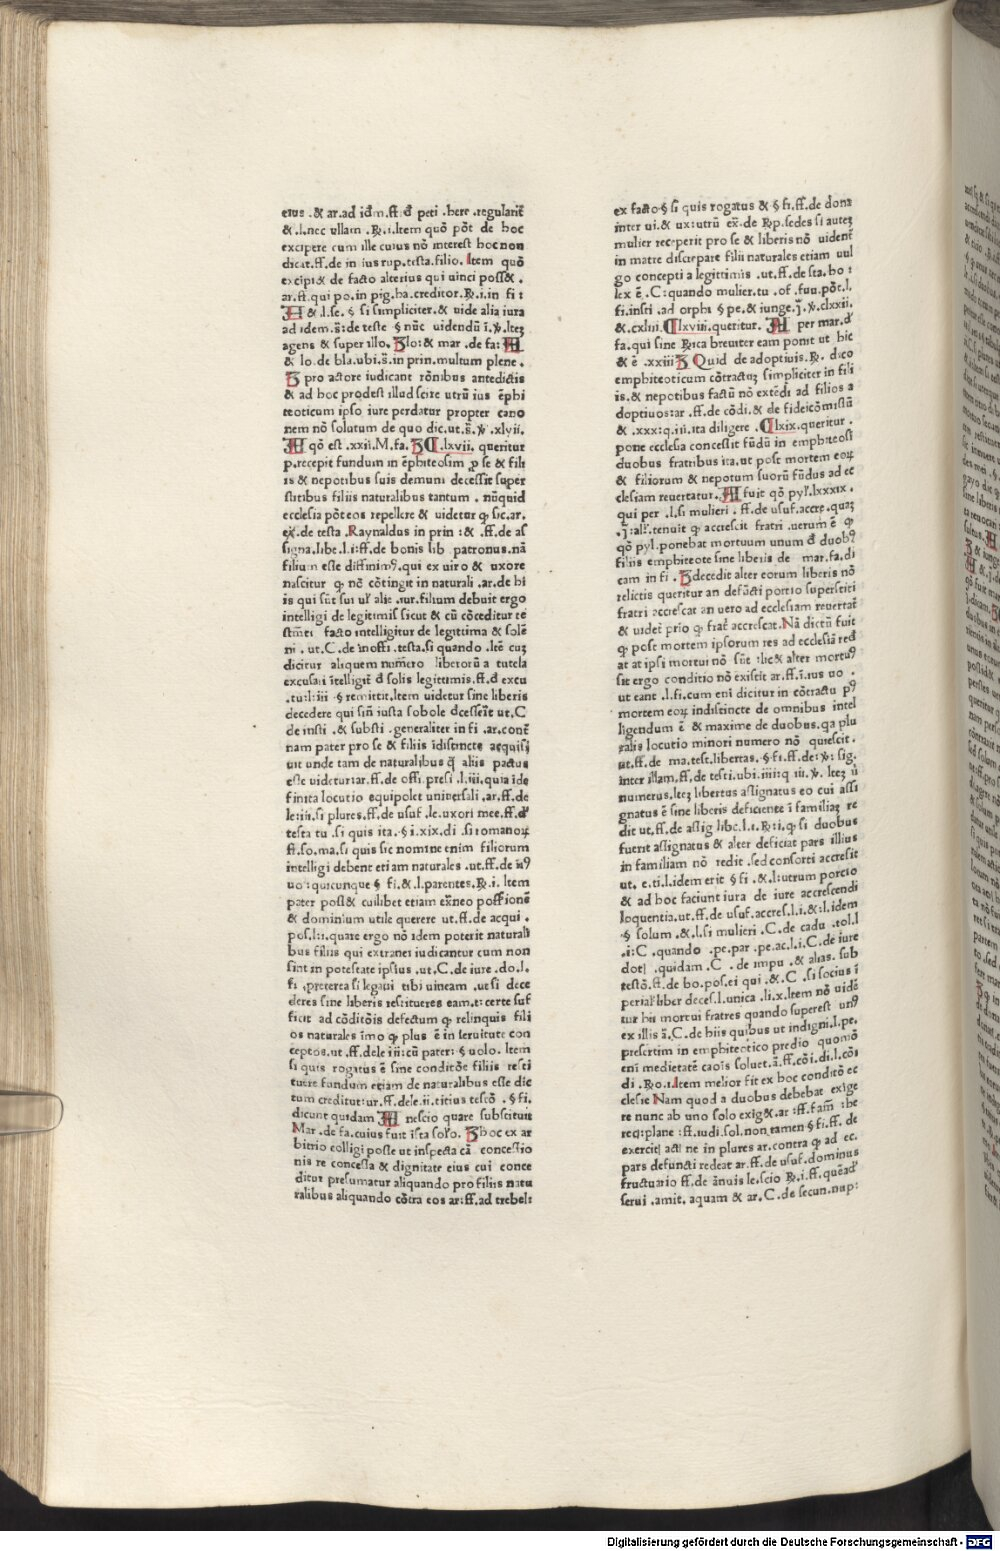 eius .& ar.ad idm̄.ff.đ peti .here .regularit̄
& .l.nec ullam .℞.i.Item quō pōt de hoc
excipere cum ille cuius nō interest hoc non
dicat.ff.de in ius rup.testa.filio. Item quō
excipi& de facto alterius qui uinci poss& .
ar.ff.qui po.in pig.ha.creditor.℞.i.in fi :
& .l.se. § si simpliciter.& uide alia iura
ad idem.s̄:de teste § nūc uidendū ī.
agens & super illo. lo: & mar .de fa:
& lo.de bla.ubi.s̄.in prin.multum plene .
pro actore iudicant rōnibus antedictis
& ad hoc prodest illud scire utrū ius ēphi
teoticum ipso iure perdatur propter cano
nem nō solutum de quo dic.ut.s̄. .xlvii.
qō est .xxii.M.fa. .lxvii. queritur
p.recepit fundum in ēphiteosim ꝓ se & fili
is & nepotibus suis demum decessit super
stitibus filiis naturalibus tantum . nūquid
ecclesia pōt eos repellere & uidetur ꝙ sic.ar.
ex̄.de testa .Raynaldus in prin : & .ff.de as
signa.libe.l.i:ff.de bonis lib patronus.nā
filium esse diffinimꝰ.qui ex uiro & uxore
nascitur ꝙ nō cōtingit in naturali .ar.de hi
is qui sūt sui ul̄ alie .iur.filium debuit ergo
intelligi de legitimis sicut & cū cōceditur te
stm̄ti facto intelligitur de legittima & solē
ni . ut.C.de inoffi .testa.si quando .Itē cuꝫ
dicitur aliquem numero liberorū a tutela
excusari ītelligit̄ đ solis legittimis.ff.đ excu
.tu:l:iii § remittit.Item uidetur sine liberis
decedere qui sin̄ iusta sobole dcesserit ut.C
de insti .& substi .generaliter in fi .ar.cont̄
nam pater pro se & filiis idistincte acquisi
uit unde tam de naturalibus q̄ aliis pactus
esse uidetur:ar.ff.de offi.presi .l.iii.quia īde
finita locutio equipolet uniuersali .ar.ff.de
le:iii.si plures.ff.de usuf .le.uxori mee.ff.đ
testa tu .si quis ita.§ i.xix.di .si romanoꝝ
ff.so.ma.si quis sic nomine enim filiorum
intelligi debent etiam naturales .ut.ff.de
uo:quicunque § fi.& .l.parentes.℞.i. Item
pater poss& cuilibet etiam ex̄neo poss̄ionē
& dominium utile querere ut.ff.de acqui .
pos.l:i.quare ergo nō idem poterit naturali
bus filiis qui extranei iudicantur cum non
sint in potestate ipsius .ut.C.de iure .do.l.
fi .preterea si legaui tibi uineam .ut si dece
deres sine liberis restitueres eam.t:certe suf
ficit ad cōditōis defectum ꝙ relinquis fili
os naturales īmo ꝙ plus ē in seruitute con
ceptos.ut .ff.dele iii:cū pater: § uolo. Item
si quis rogatus ē sine conditōe filiis resti
tuere fundum etiam de naturalibus esse dic
tum creditur:ur.ff.dele.ii.titius testō . § fi.
dicunt quidam nescio quare substituit
Mar .de fa.cuius fuit ista solo. hoc ex ar
bitrio colligi posse ut inspecta cā concessio
nis re concessa & dignitate eius cui conce
ditur presumatur aliquando pro filiis natu
ralibus aliquando cōtra eos ar:ff.ad trebel:
ex facto § si quis rogatus & § fi.ff.de dona
inter ui.& ux:utrū ex̄.de ℞p.sedes si auteꝫ
mulier receperit pro se & liberis nō uident̄
in matre discrepare filii naturales etiam uul
go concepti a legittimis .ut.ff.de sta.ho :
lex ē .C:quando mulier.tu .of .fuu.pōt.l.
fi.insti .ad orphi § pe.& iunge.j̄. .clxxii.
& .cxliii. lxviii.queritur. per mar.đ
fa.qui sine ℞ica breuiter eam ponit ut hic
& ē .xxiii Quid de adoptiuis.℞. dico
emphiteoticum cōtractuꝫ simpliciter in fili
is.& nepotibus factū nō extēdi ad filios a
doptiuos:ar .ff.de cōdi.& de fideicōmissū
& .xxx:q.iii.ita diligere . lxix.queritur .
pone ecclesia concessit fūdū in emphiteosi
duobus fratribus ita.ut post mortem eoꝝ
& filiorum & nepotum suorū fūdus ad ec
clesiam reuertatur. fuit qō pyl.lxxxix .
qui per .l.si mulieri . ff.de usuf.accre.quaꝫ
.j̄:al̄r.tenuit ꝙ accrescit fratri .uerum ē ꝙ
qō pyl.ponebat mortuum unum đ duobꝰ
filiis emphiteote sine liberis de mar.fa.di
cam in fi . decedit alter eorum liberis nō
relictis queritur an defūcti portio superstiti
fratri accrescat an uero ad ecclesiam reuertat̄
& uidet̄ prio ꝙ frat̄ accrescat.Nā dictū fuit
ꝙ post mortem ipsorum res ad ecclesiā red
at at ipsi mortui nō sūt :lic& alter mortuꝰ
sit ergo conditio nō existit ar.ff.ī.ius uo .
ut cant .l.fi.cum eni dicitur in cōtractu pꝰ
mortem eoꝝ indistincte de omnibus intel
ligendum ē & maxime de duobus.qa plu
ralis locutio minori numero nō quiescit .
ut.ff.de ma.test.libertas. § fi.ff.de: : sig.
inter illam.ff.de testi.ubi .iiii:q iii. . ū
numerus. libertus assignatus eo cui assi
gnatus ē sine liberis deficiente ī familiaꝫ re
dit ut.ff.de assig libe.l.i.℞:i.ꝙ si duobus
fuerit assignatus & alter deficiat pars illius
in familiam nō redit .sed consorti accrescit
ut. e.ti.l.idem erit § fi .& .l:utrum portio
& ad hoc faciunt iura de iure accrescendi
loquentia.ut.ff.de usuf.accres.l.i.&:l.idem
§ solum .&.l.si mulieri .C.de cadu .tol.l
.i:C .quando .pe.par .pe.ac.l.i.C.de iure
dot .quidam .C . de impu .& alias. sub
testō.ff.de bo.pos.ei qui .& .C .si socius ī
perial̄ liber deces.l.unica .li.x.Item nō uidē
tur hii mortui fratres quando superest unꝰ
ex illis ā.C.de hiis quibus ut indigni.l.pe.
presertim in emphiteotico predio quomō
eni medietatē caōis soluet.ā.ff.cōi.di.l.cōs
di .℞o.i.Item melior fit ex hoc conditō ec
clesie Nam quod a duobus debebat exige
re nunc ab uno solo exig& .ar :ff.fam̄ :he
reci:plane :ff.iudi.sol.non tamen § fi.ff. de
exerci acti ne in plures ar.contra ꝙ ad ec.
pars defuncti redeat ar.ff.de usuf.dominus
fructuario ff.de ānuis le.scio ℞.i.ff.quēad̄
serui .amit. aquam & ar.C.de secun.nup:
Digitalisierung gefördert durch die Deutsche Forschungsgemeinschaft - DFG